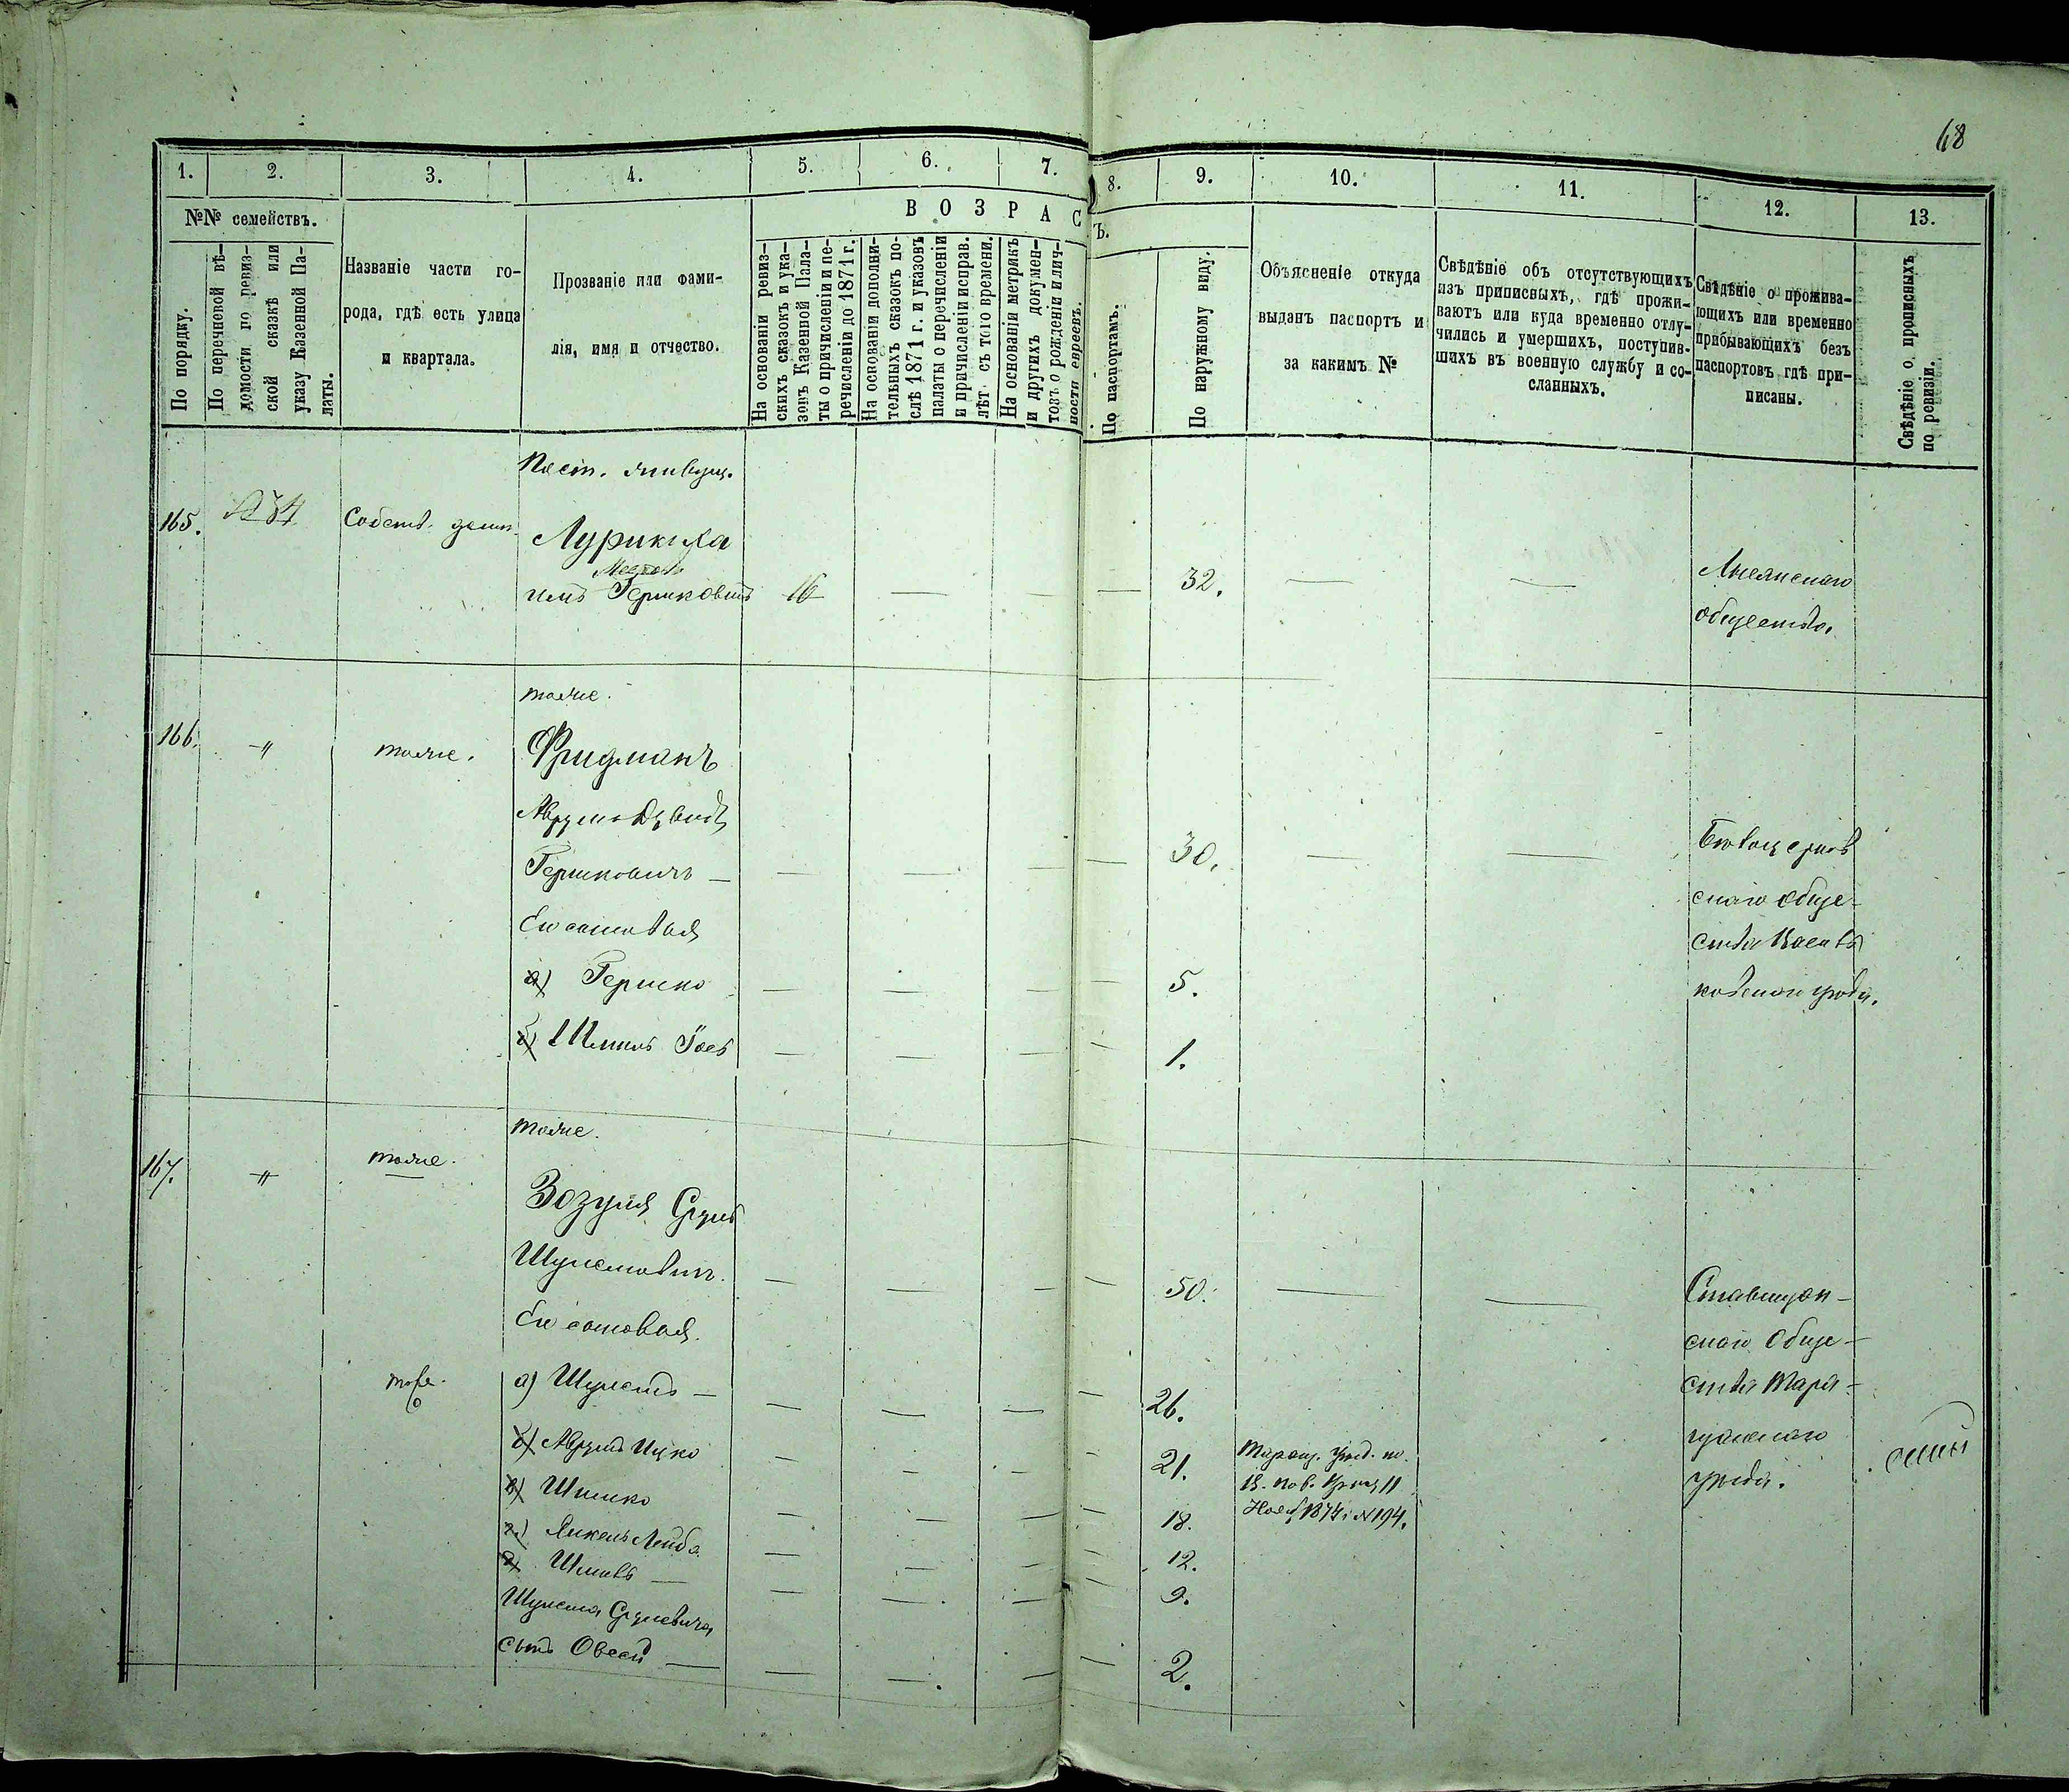 68
1. 2. 3. 4. 5. 6. 7. 8. 9. 10. 11. 12. 13.
№№ семействъ.
По порядку.
По перечневой вѣ-
домости по ревиз-
ской сказкѣ или
указу Казенной Па-
латы.
Названіе части го-
рода, гдѣ есть улица
и квартала.
Прозваніе или фами-
лія, имя и отчество.
ВОЗРАСТЪ.
На основаніи ревиз-
скихъ сказокъ и ука-
зовъ Казенной Пала-
ты о причисленіи и пе-
речисленіи до 1871 г.
На основаніи дополни-
тельныхъ сказокъ по-
слѣ 1871 г. и указовъ
палаты о перечисленіи
и причисленіи исправ.
лѣт съ того времени.
На основаніи метрикъ
и другихъ докумен-
товъ о рожденіи и лич-
ности евреевъ.
По паспортамъ.
По наружному виду.
Объясненіе откуда
выданъ паспортъ и
за какимъ №
Свѣдѣніе объ отсутствующихъ
изъ приписныхъ, гдѣ прожи-
ваютъ или куда временно отлу-
чились и умершихъ, поступив-
шихъ въ военную службу и со-
сланныхъ.
Свѣдѣніе о прожива-
ющихъ или временно
прибывающихъ безъ
паспортовъ гдѣ при-
писаны.
Свѣдѣніе о прописныхъ
по ревизіи.
165.
Собств. домъ.
Гершковичъ
16
32.
общества.
тоже.
166.
тоже.
Фридманъ
Гершковичъ —
Его сыновья
а) Гершко
30.
5.
1.
скаго обще-
ства Василь
ковскаго уѣзда.
тоже.
167.
тоже.
Зозуля Сруль
Шулемовичъ.
Его сыновья.
тоже.
а) Шулемъ —
б) Аврумъ Ицко
в) Шимко
г) Янкель Лейба
Шулема Срулевича
сынъ Овсей —
50.
26.
21.
18.
12.
9.
2.
Нояб. 1874 г. №194.
Ставищан-
скаго обще-
ства Тара-
щанскаго
уѣзда.